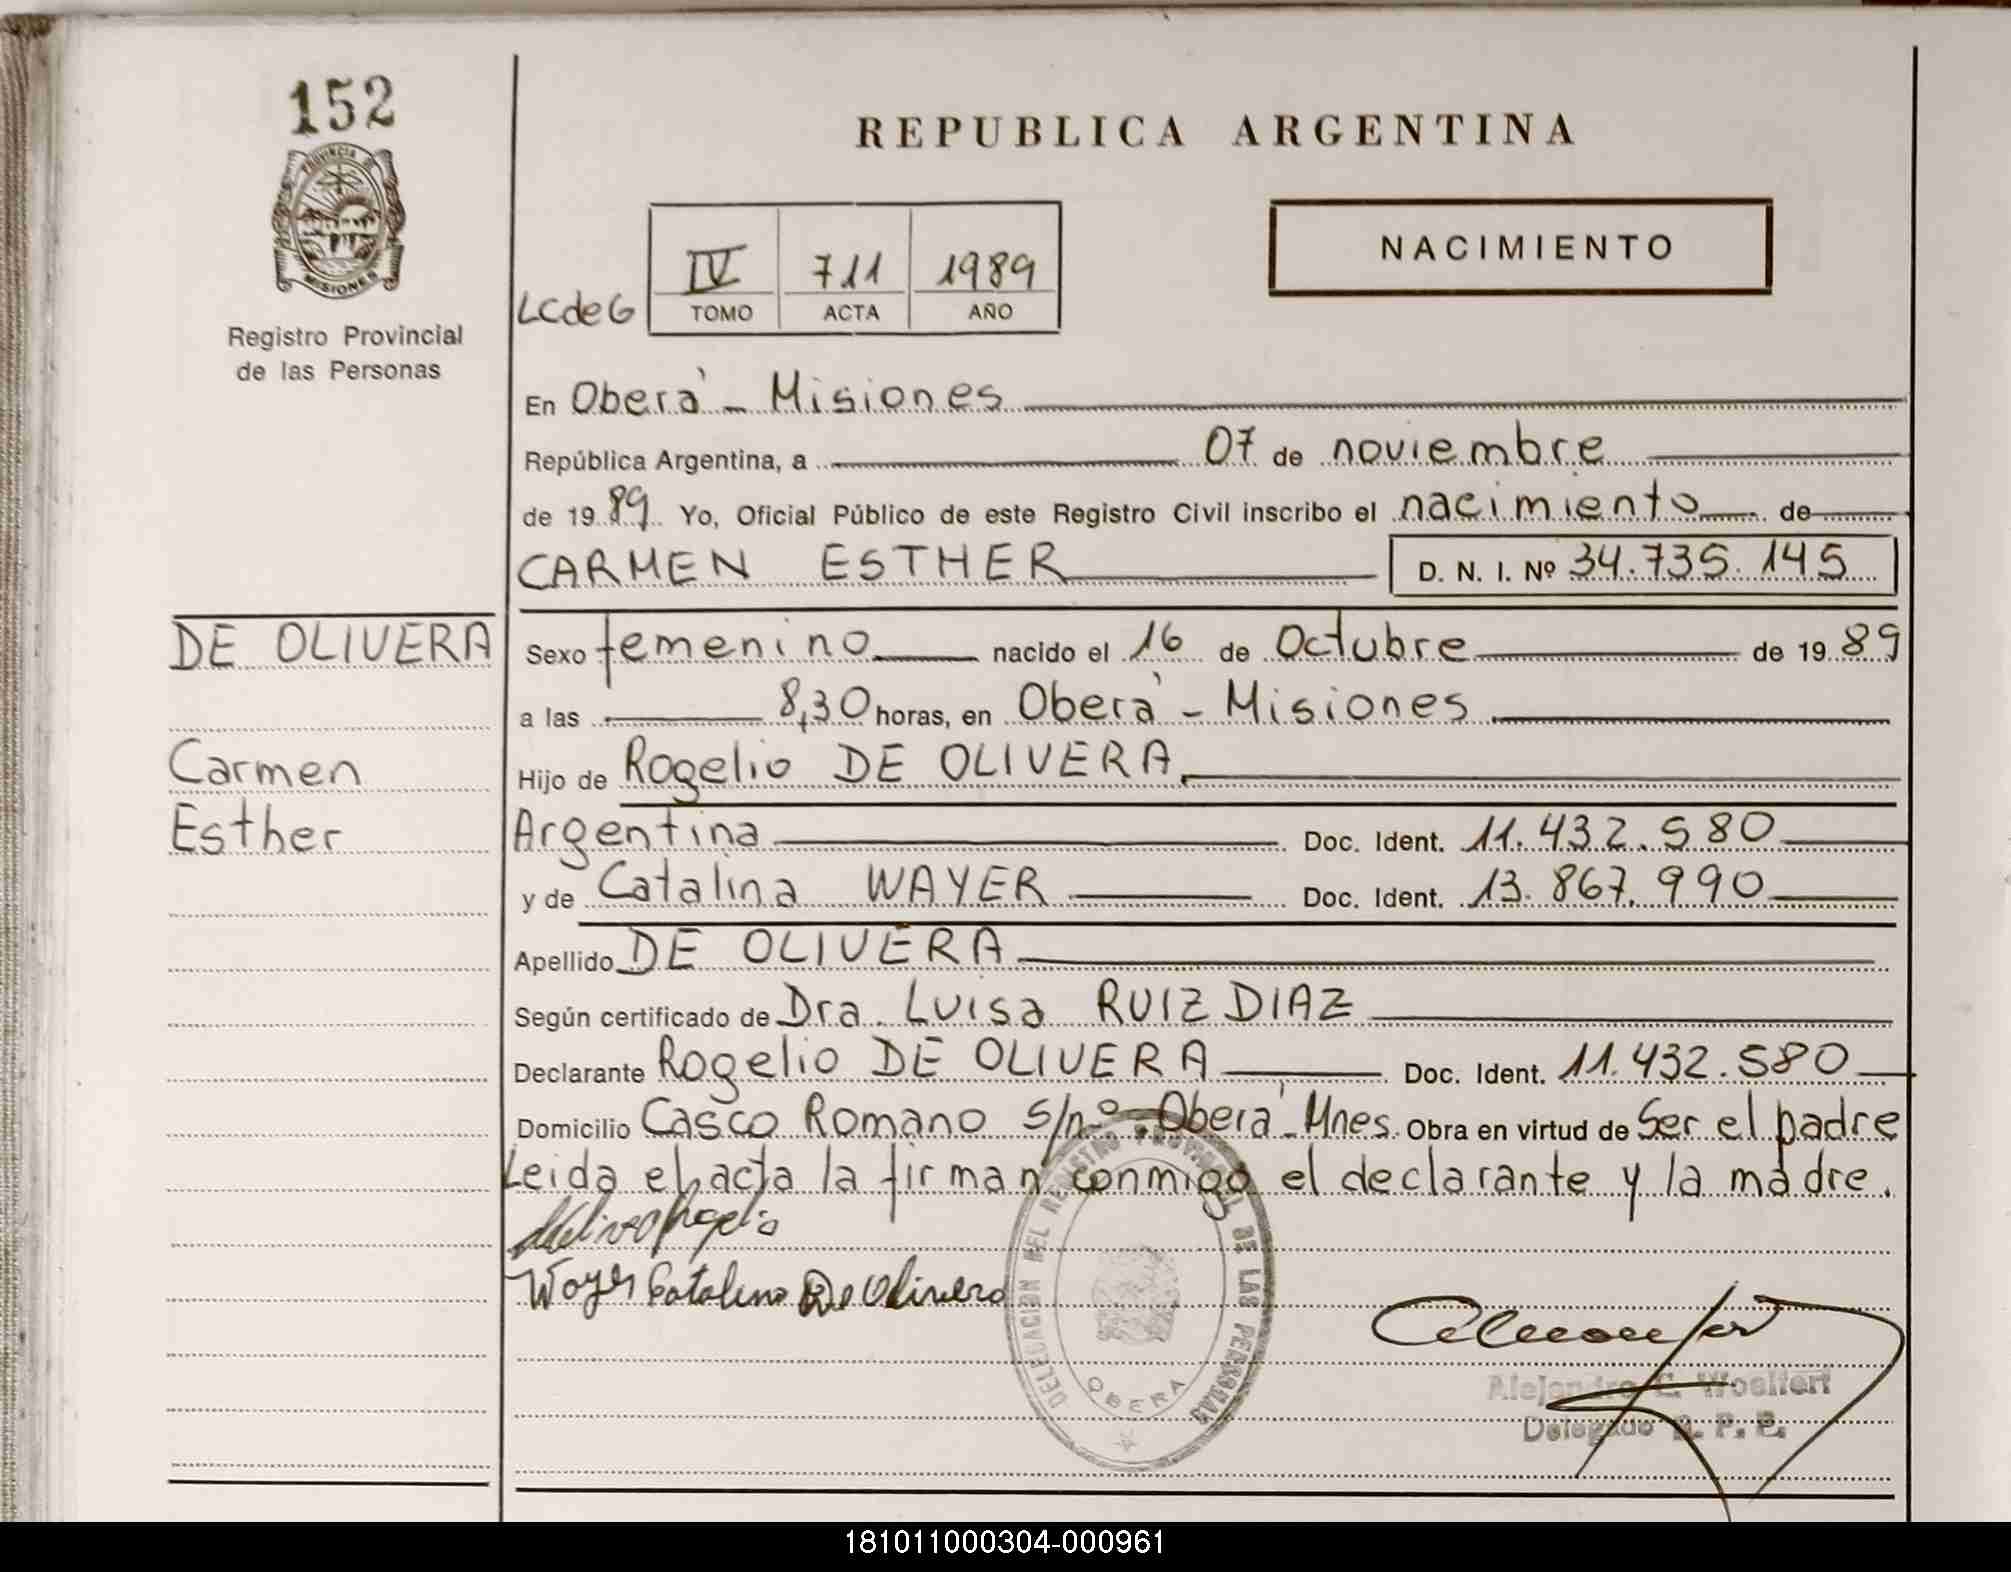 152
PROVINCIA DE
MISIONES
Registro Provincial
de las Personas
REPUBLICA ARGENTINA
NACIMIENTO
IV 711 1989
LCdeG TOMO ACTA AÑO
En Oberá - Misiones
República Argentina, a 07 de noviembre
de 1989 Yo, Oficial Público de este Registro Civil inscribo el nacimiento de
CARMEN ESTHER D. N. I. Nº 34.735.145
DE OLIVERA
Carmen
Esther
Sexo femenino nacido el 16 de Octubre de 1989
a las 8,30 horas, en Oberá - Misiones
Hijo de Rogelio DE OLIVERA
Argentina Doc. Ident. 11.432.580
y de Catalina WAYER Doc. Ident. 13.867.990
Apellido DE OLIVERA
Según certificado de Dra. Luisa RUIZ DIAZ
Declarante Rogelio DE OLIVERA Doc. Ident. 11.432.580
Domicilio Casco Romano s/nº - Oberá - Mnes. Obra en virtud de Ser el padre
Leida el acta la firman conmigo el declarante y la madre.
Wayer Catalina De Olivera
DELEGACION DEL REGISTRO PROVINCIAL DE LAS PERSONAS
OBERA
Alejandro C. Woelfert
Delegado R. P. P.
181011000304-000961